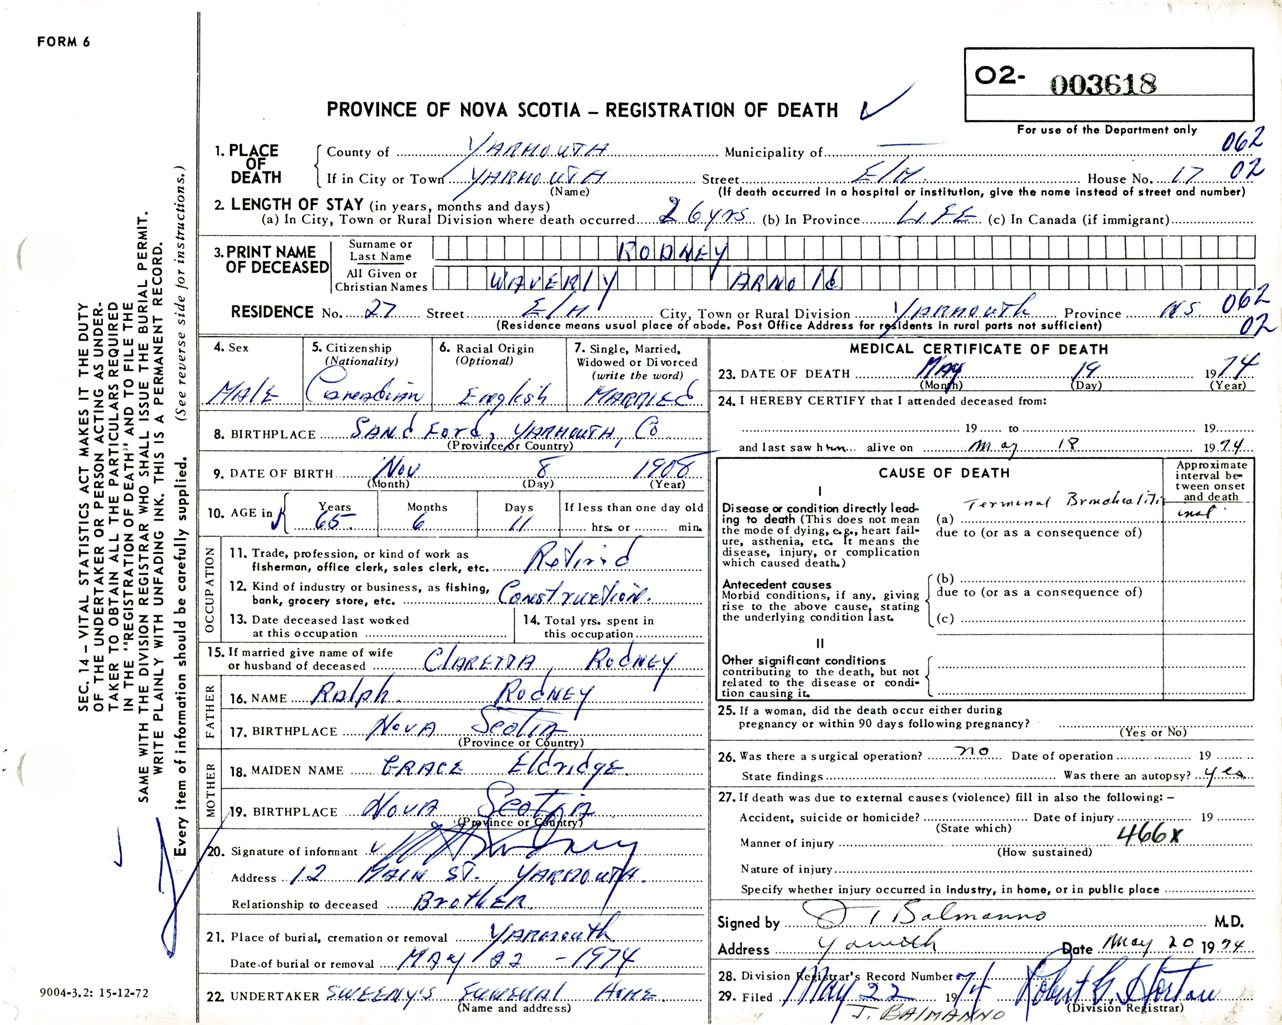 FORM 6
O2- 003618
For use of the Department only
PROVINCE OF NOVA SCOTIA – REGISTRATION OF DEATH
062
02
1. PLACE OF DEATH
County of YARMOUTH Municipality of —
If in City or Town YARMOUTH Street ELM House No. 17
(Name) (If death occurred in a hospital or institution, give the name instead of street and number)
2. LENGTH OF STAY (in years, months and days)
(a) In City, Town or Rural Division where death occurred 26 yrs (b) In Province LIFE (c) In Canada (if immigrant)
3. PRINT NAME OF DECEASED
Surname or Last Name RODNEY
All Given or Christian Names WAVERLY ARNOLd
RESIDENCE No. 27 Street ELM City, Town or Rural Division YARMOUTH Province NS
062
02
(Residence means usual place of abode. Post Office Address for residents in rural parts not sufficient)
4. Sex MALE
5. Citizenship (Nationality) Canadian
6. Racial Origin (Optional) English
7. Single, Married, Widowed or Divorced (write the word) MARRIED
8. BIRTHPLACE SANdFORd, YARMOUTH, Co
(Province or Country)
9. DATE OF BIRTH Nov 8 1908
(Month) (Day) (Year)
10. AGE in Years 65 Months 6 Days 11 If less than one day old hrs. or min.
OCCUPATION
11. Trade, profession, or kind of work as fisherman, office clerk, sales clerk, etc. Retired
12. Kind of industry or business, as fishing, bank, grocery store, etc. Construction.
13. Date deceased last worked at this occupation
14. Total yrs. spent in this occupation
15. If married give name of wife or husband of deceased CLARETTA RODNEY
FATHER
16. NAME Ralph. RODNEY
17. BIRTHPLACE NOVA SCOTIA
(Province or Country)
MOTHER
18. MAIDEN NAME GRACE Eldridge.
19. BIRTHPLACE NOVA SCOTIA
(Province or Country)
20. Signature of informant Rodney
Address 12 MAIN ST. YARMOUTH.
Relationship to deceased BROTHER
21. Place of burial, cremation or removal YARMOUTH
Date of burial or removal MAY 22 - 1974
22. UNDERTAKER SWEENY'S FUNERAL HOME.
(Name and address)
MEDICAL CERTIFICATE OF DEATH
23. DATE OF DEATH May 19 1974
(Month) (Day) (Year)
24. I HEREBY CERTIFY that I attended deceased from:
19 to 19
and last saw him alive on May 18 1974
CAUSE OF DEATH
Approximate interval between onset and death
I
Disease or condition directly leading to death (This does not mean the mode of dying, e.g., heart failure, asthenia, etc. It means the disease, injury, or complication which caused death.)
(a) Terminal Bronchiolitis
due to (or as a consequence of)
Antecedent causes
Morbid conditions, if any, giving rise to the above cause, stating the underlying condition last.
(b)
due to (or as a consequence of)
(c)
II
Other significant conditions contributing to the death, but not related to the disease or condition causing it.
25. If a woman, did the death occur either during pregnancy or within 90 days following pregnancy?
(Yes or No)
26. Was there a surgical operation? no Date of operation 19
State findings Was there an autopsy? yes
27. If death was due to external causes (violence) fill in also the following: –
Accident, suicide or homicide? Date of injury 19
(State which)
Manner of injury 466x
(How sustained)
Nature of injury
Specify whether injury occurred in industry, in home, or in public place
Signed by J Balmanno M.D.
Address Yarmouth Date May 20 1974
28. Division Registrar's Record Number 74
29. Filed May 22 1974 Robert G. Horton
(Division Registrar)
J. BALMANNO
SEC. 14 – VITAL STATISTICS ACT MAKES IT THE DUTY
OF THE UNDERTAKER OR PERSON ACTING AS UNDER-
TAKER TO OBTAIN ALL THE PARTICULARS REQUIRED
IN THE "REGISTRATION OF DEATH" AND TO FILE THE
SAME WITH THE DIVISION REGISTRAR WHO SHALL ISSUE THE BURIAL PERMIT.
WRITE PLAINLY WITH UNFADING INK. THIS IS A PERMANENT RECORD.
Every item of information should be carefully supplied. (See reverse side for instructions.)
9004-3.2: 15-12-72